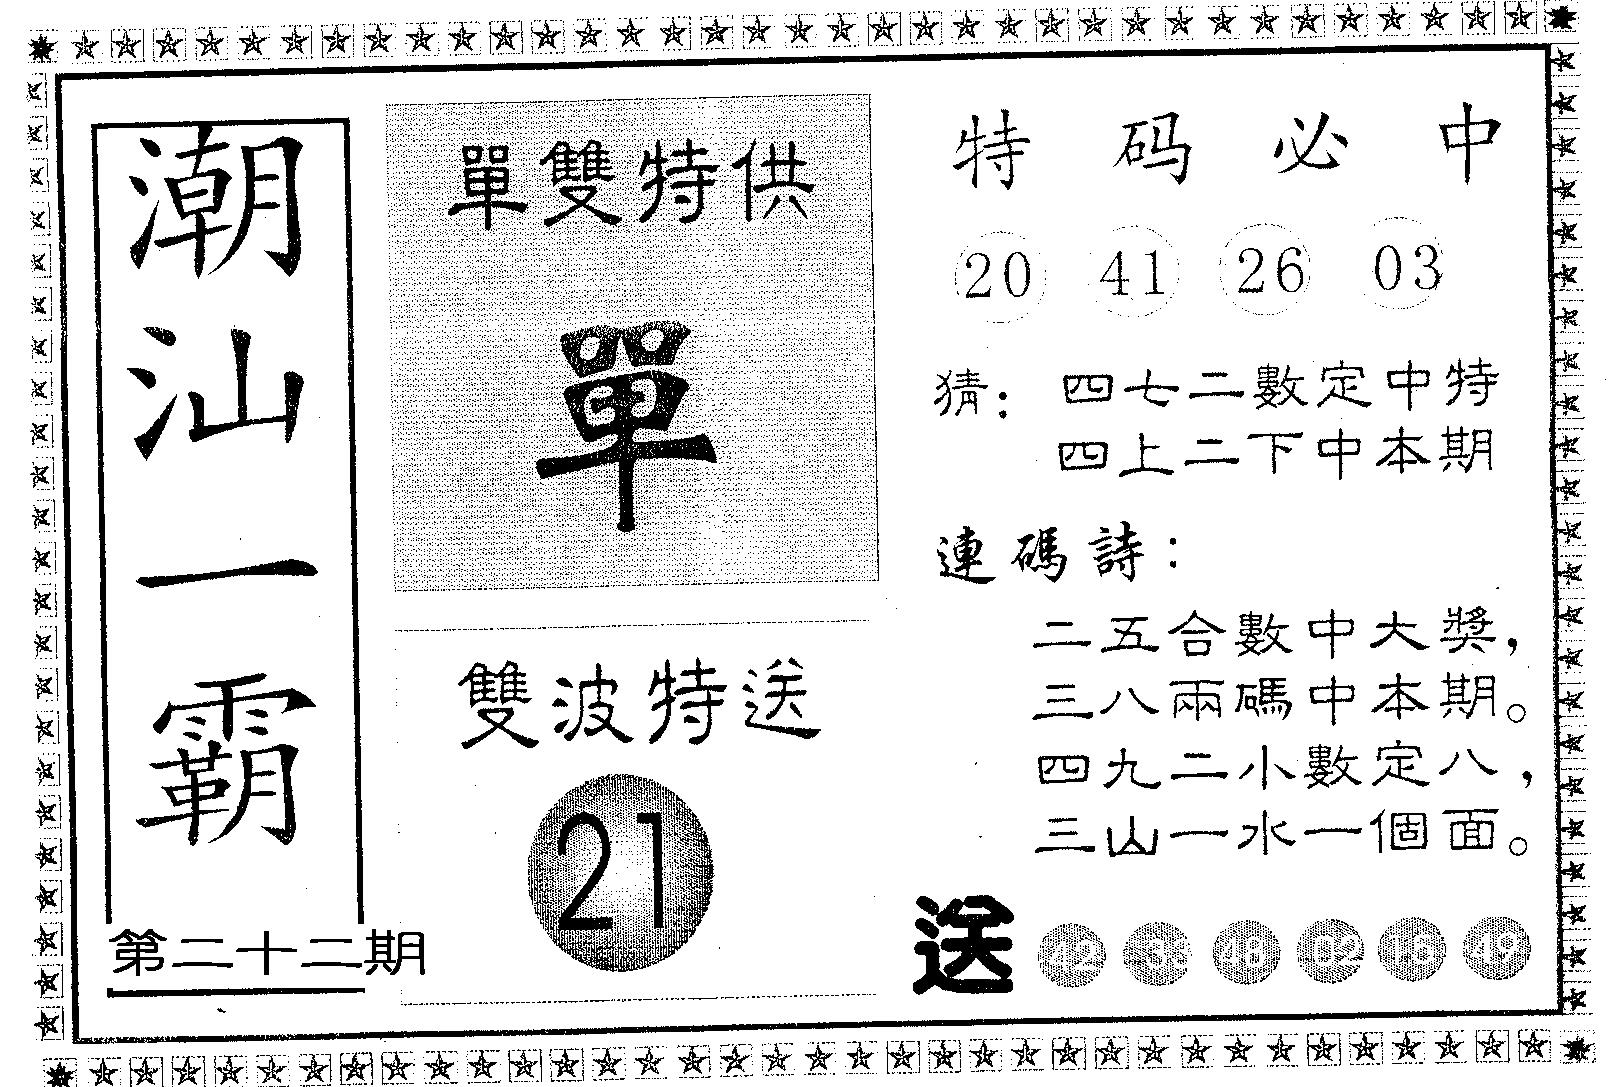 潮汕一霸
第二十二期
單雙特供
單
雙波特送
21
特码必中
20 41 26 03
猜：四七二數定中特
四上二下中本期
連碼詩：
二五合數中大獎，
三八兩碼中本期。
四九二小數定八，
三山一水一個面。
送 42 48 02 16 49